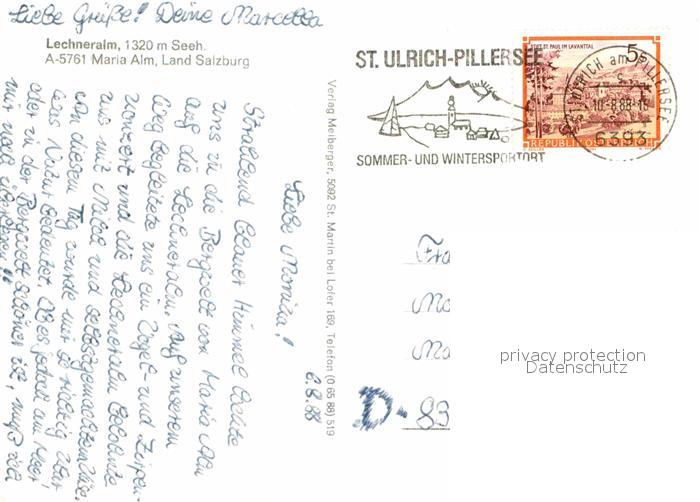 Liebe Grüße! Deine Marcella
Lechneralm, 1320 m Seeh.
A-5761 Maria Alm, Land Salzburg
6.8.88
Liebe Monika!
Strahlend blauer Himmel lockte
uns in die Bergwelt von Maria Alm
auf die Lechneralm. Auf unserem
Weg begleitete uns ein Vogel- und
konzert und die Lechneralm belohnte
uns mit Milch und selbstgemachtem Käse.
An diesem Tag wurde mir so richtig klar
was Natur bedeutet. Ob es jedoch am Meer
oder in der Bergwelt schöner ist, muß ich
mir noch überlegen!!
Verlag Melberger, 5092 St. Martin bei Lofer 169, Telefon (0 65 88) 519
ST. ULRICH-PILLERSEE
SOMMER- UND WINTERSPORTORT
STIFT ST. PAUL IM LAVANTTAL
5S
REPUBLIK ÖSTERREICH
ST. ULRICH am PILLERSEE
10.-8.88-15
6393
Fra
Mo
Ma
D-83
privacy protection
Datenschutz